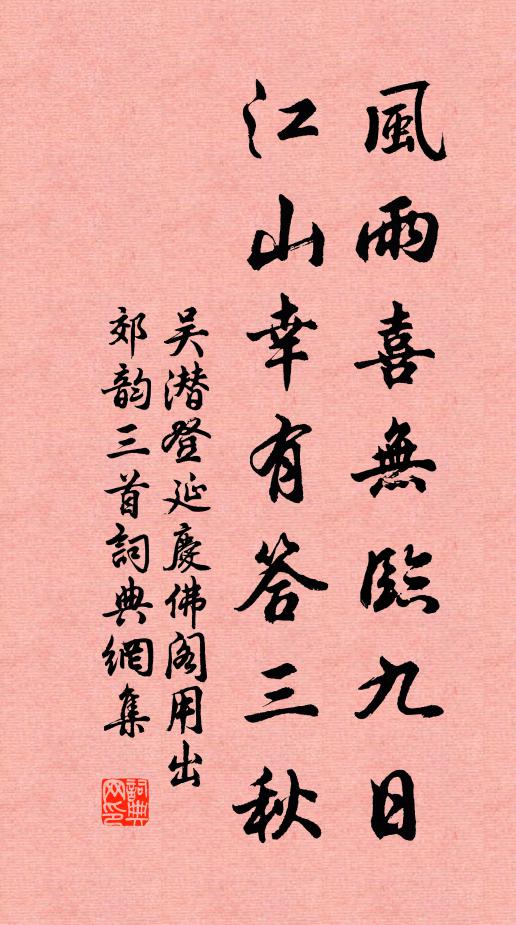 風雨喜無臨九日
江山幸有答三秋
吴潜登延慶佛阁用出
郊韵三首詞典網集
詞典
网印